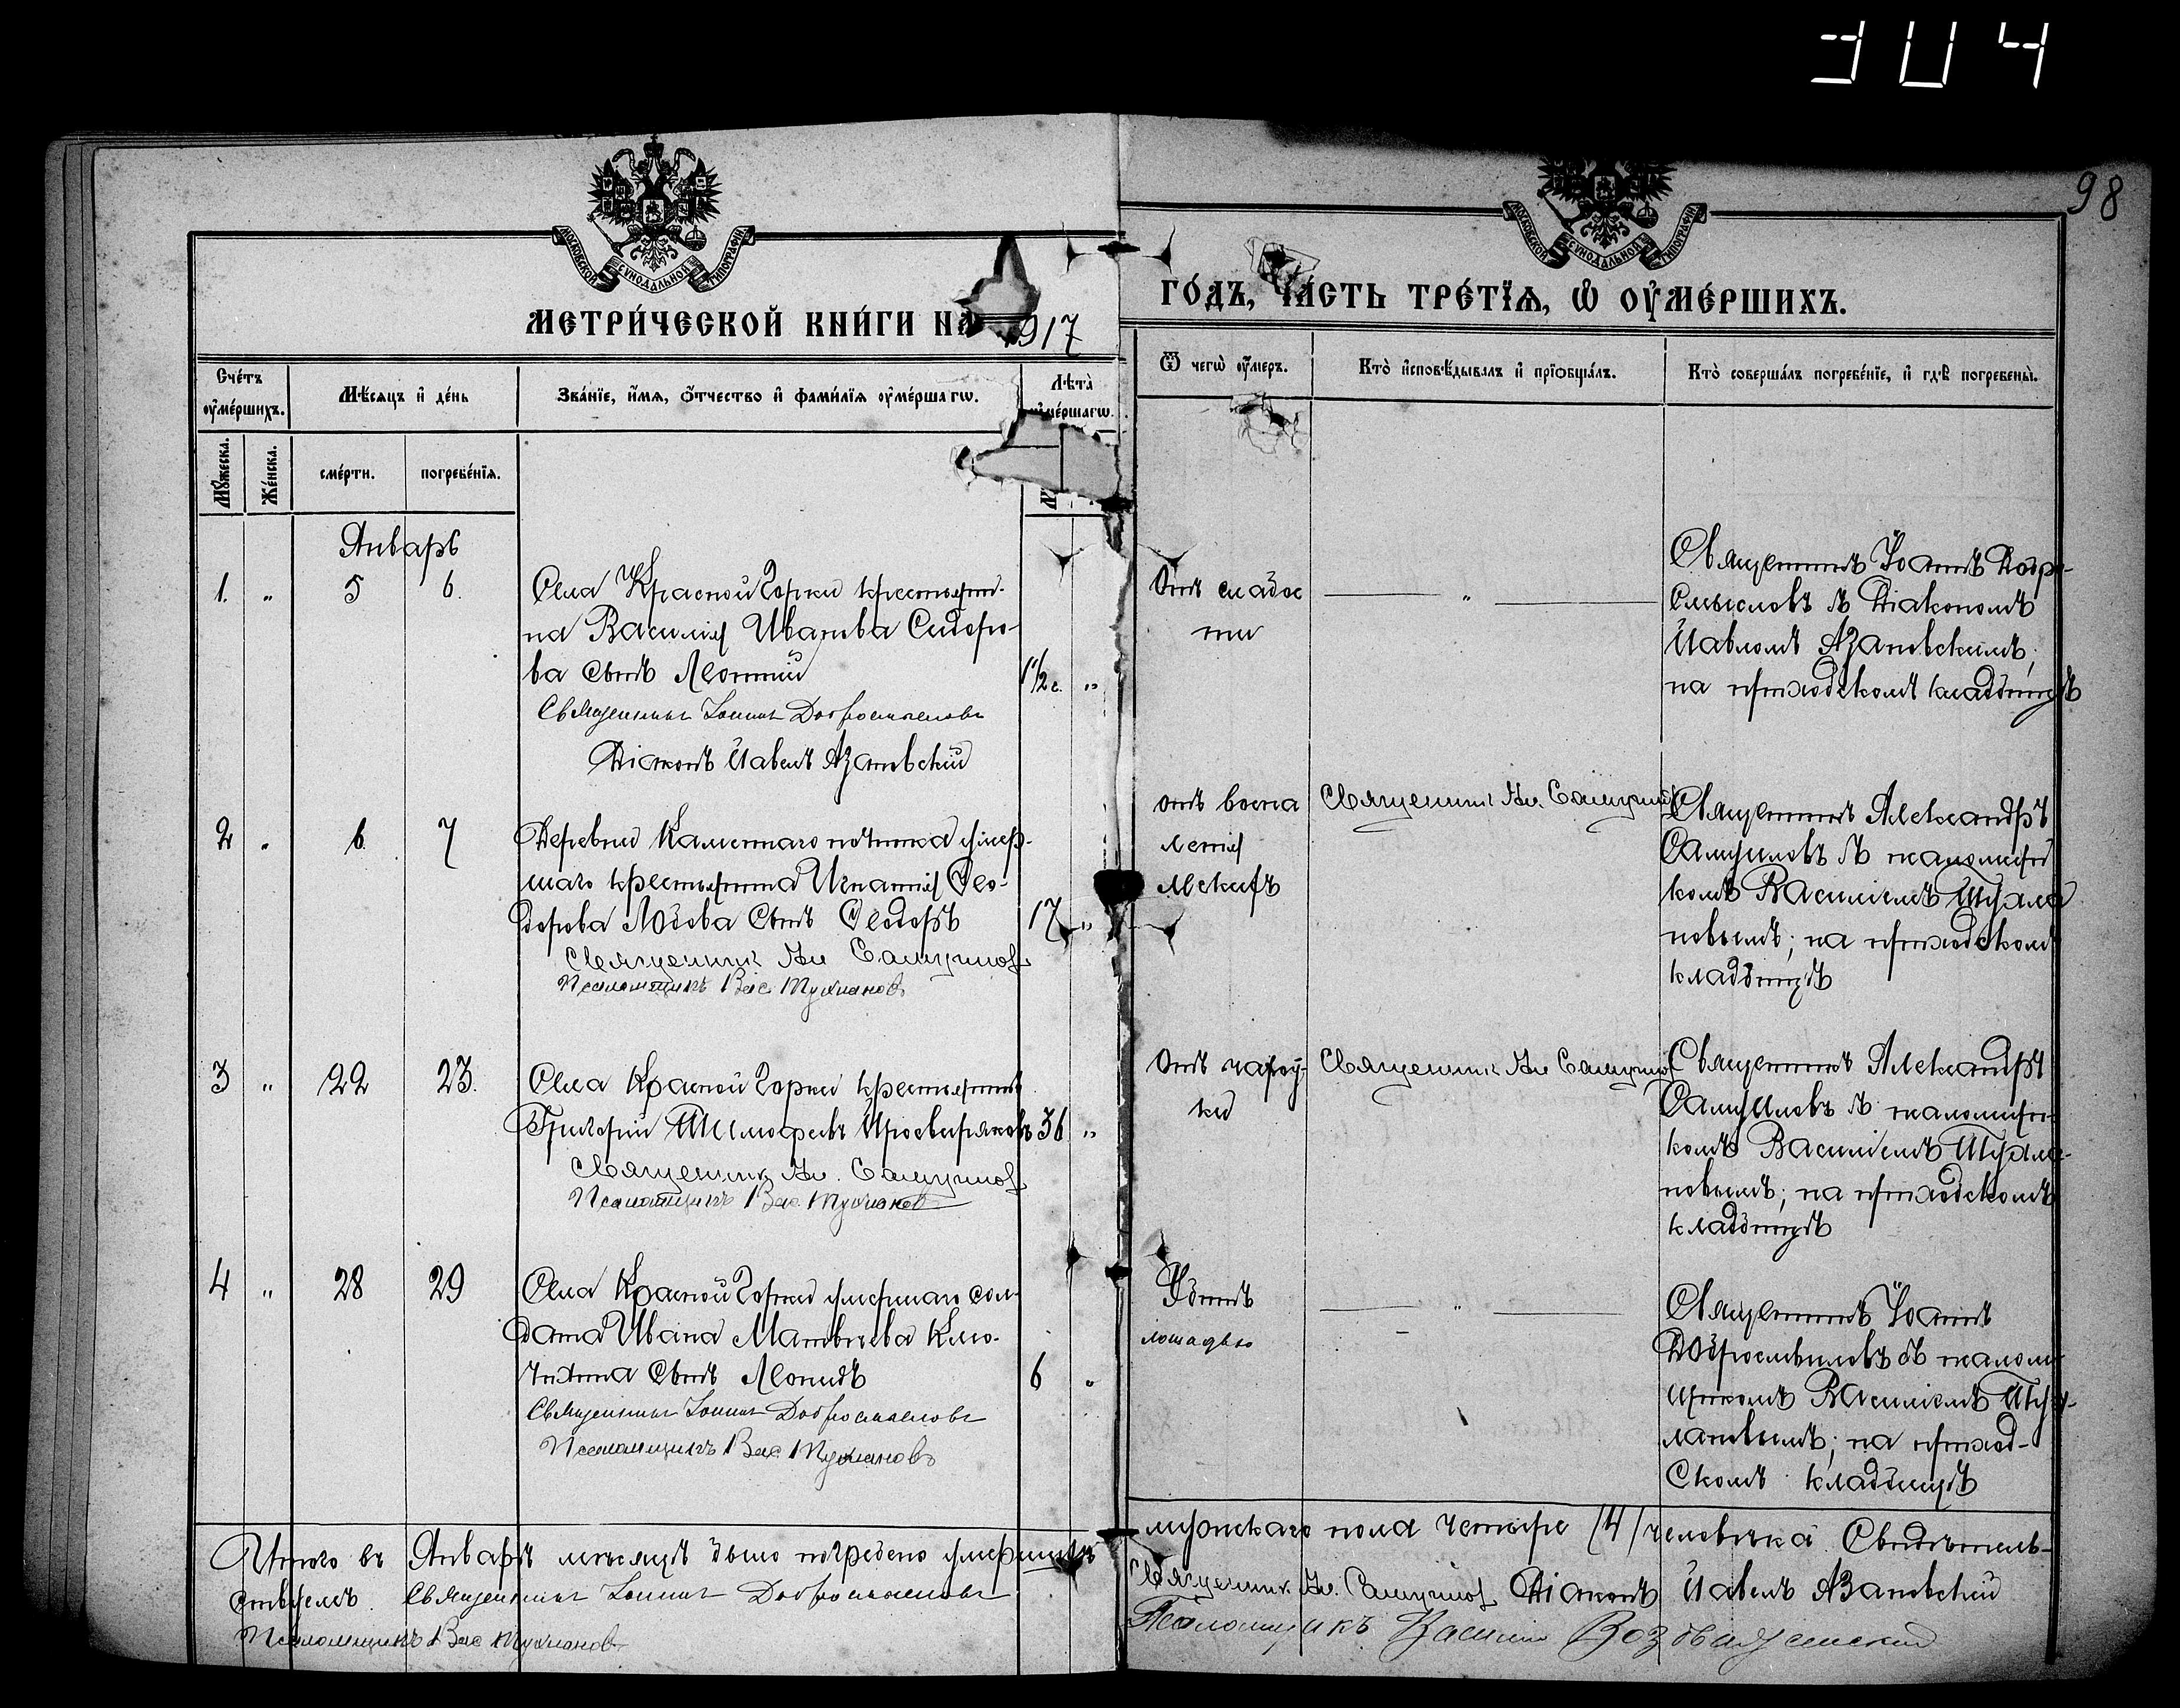 304
98
МОСКОВСКОЙ СУНОДАЛЬНОЙ ТИПОГРАФІИ
МОСКОВСКОЙ СУНОДАЛЬНОЙ ТИПОГРАФІИ
МЕТРИ́ЧЕСКОЙ КНИ́ГИ НА 1917
ГО́ДЪ, ЧА́СТЬ ТРЕ́ТЇѦ, Ѡ ОУ҆МЕ́РШИХЪ.
Сче́тъ оу҆ме́ршихъ.
Мѣ́сяцъ и҆ де́нь
Зва́нїе, и҆́мѧ, ѻ҆́тчество и҆ фами́лїѧ оу҆ме́ршагѡ.
Лѣта̀ оу҆ме́ршагѡ.
Ѿ чегѡ̀ оу҆́меръ.
Кто̀ и҆сповѣ́дывалъ и҆ прїѡбща́лъ.
Кто̀ соверша́лъ погребе́нїе, и҆ гдѣ̀ погребены̀.
Мꙋ́жеска.
Же́нска.
сме́рти.
погребе́нїѧ.
Январь
1. " 5 6.
Села Красной Горки крестьяни-
на Василія Иванова Сидоро-
ва сынъ Леонтій
1 1/2 г. "
Священникъ Іоаннъ Добросмысловъ
Діаконъ Павелъ Азановскій
Отъ слабос
ти
"
Священникъ Іоаннъ Добро-
смысловъ съ Діакономъ
Павломъ Азановскимъ;
на приходскомъ кладбищѣ
2 " 6 7
Деревни Каменнаго починка умер-
шаго крестьянина Игнатія Ѳео-
дорова Лобова сынъ Ѳеодоръ
17 "
Священник Ал. Самуилов
Псаломщикъ Вас. Тухланов
отъ воспа
ленія
легкихъ
Священник Ал. Самуилов
Священникъ Александръ
Самуиловъ съ псаломщи
комъ Василіемъ Тухла
новымъ; на приходскомъ
кладбищѣ
3 " 22 23.
Села Красной Горки крестьянинъ
Григорій Тимофеевъ Просвиряковъ 36 "
Священник Ал. Самуилов
Псаломщикъ Вас. Тухланов
Отъ чахот-
ки
Священник Ал. Самуилов
Священникъ Александръ
Самуиловъ съ псаломщи-
комъ Василіемъ Тухла-
новымъ; на приходскомъ
кладбищѣ
4 " 28 29
Села Красной Горки умершаго сол-
дата Ивана Матвѣева
сынъ Леонидъ
6 "
Священникъ Іоаннъ Добросмысловъ
Псаломщикъ Вас. Тухлановъ
Убитъ
лошадью
"
Священникъ Іоаннъ
Добросмысловъ съ псалом-
щикомъ Василіемъ Тух-
лановымъ; на приход-
скомъ кладбищѣ
Итого въ Январѣ мѣсяцѣ было погребено умершихъ
мужскаго пола четыре /4/ человѣка. Свидѣтель-
ствуемъ. Священникъ Іоаннъ Добросмысловъ
Священник Ал. Самуилов Діаконъ Павелъ Азановскій
Псаломщикъ Вас. Тухланов
Псаломщикъ Василій Воздвиженский